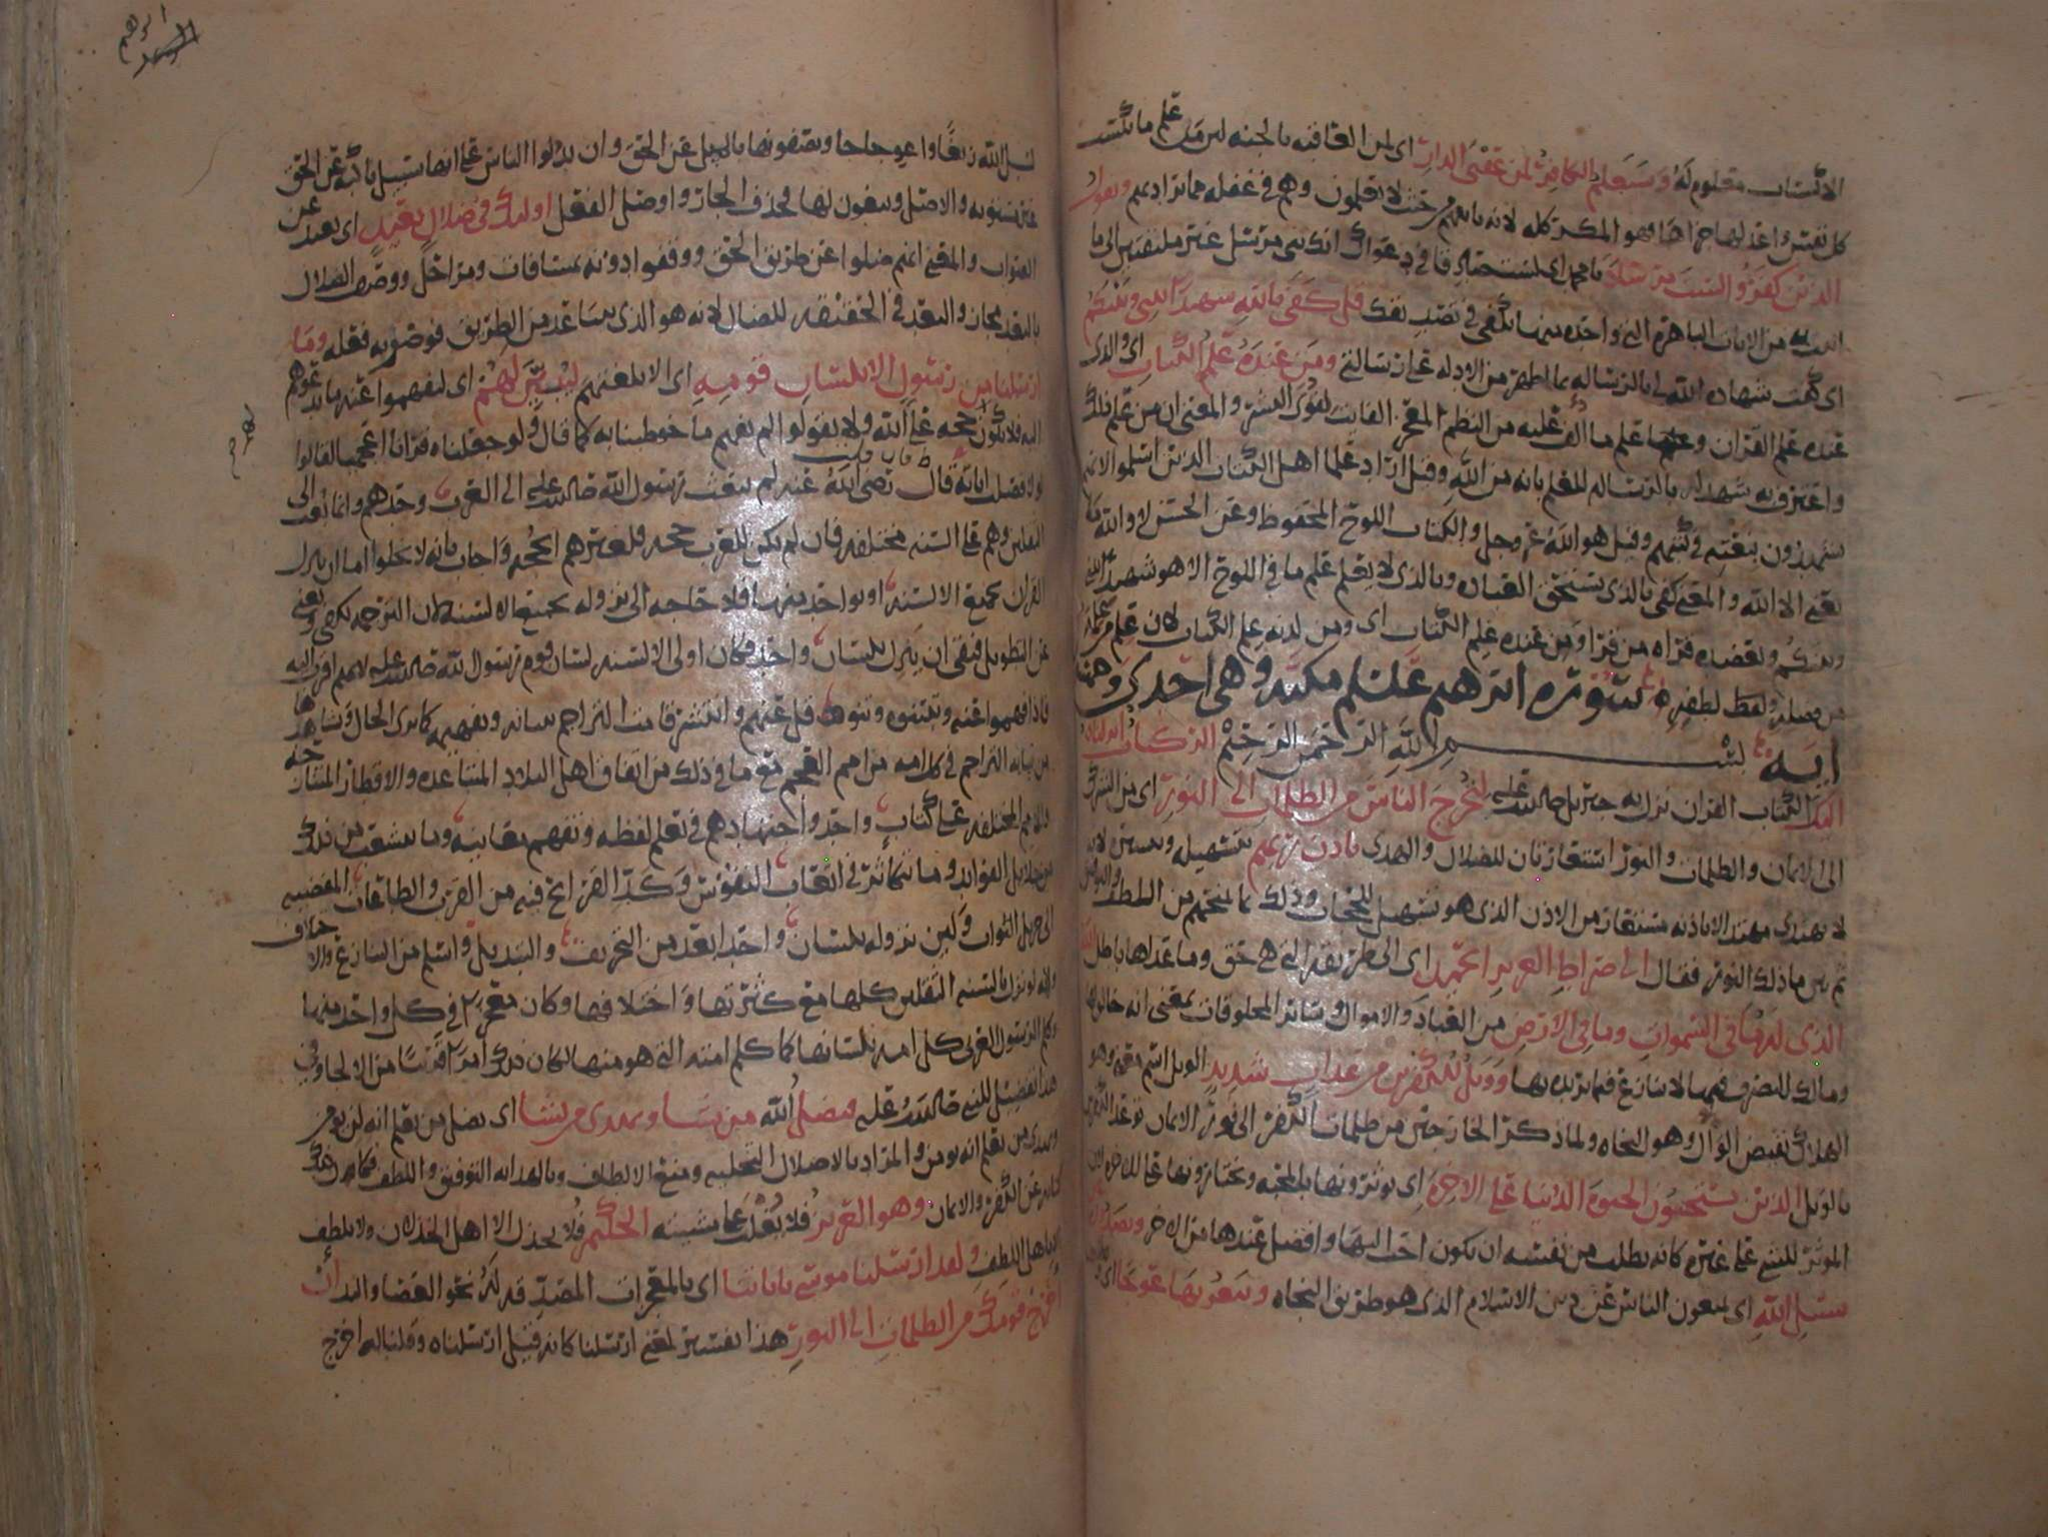 الاكتساب معلوم له وسيعلم الكافر لمن عقبى الدار اي لمن العاقبة بالجنه لان من علم ما تكتسب
كل نفس واعد لها جزاها فهو المكر كله لانه ياتيهم من حيث لا يعلمون وهم في غفله مما يراد بهم ويقول
الذين كفروا لست مرسلا يا محمد اي لست صادقا في دعواك انك نبي مرسل غير ملتفتين الى ما
من الايات الباهرة التي واحده منها تكفي في تصديقك قل كفى بالله شهيدا بيني وبينكم
اي كفت شهاده الله لي بالرساله بما اظهر من الادله على رسالتي ومن عنده علم الكتاب اي والذي
عنده علم القران وعلم ما الف عليه من النظم المعجز الفائت لقوى البشر والمعنى ان من علم ذلك
واعترف به شهد له بالرساله للعلم بانه من الله وقيل اراد علما اهل الكتاب الذين اسلموا لانهم
يشهدون بنعته في كتبهم وقيل هو الله عز وجل والكتاب اللوح المحفوظ وعن الحسن لا والله ما
يعني الا الله والمعنى كفى بالذي يستحق العباده وبالذي لا يعلم علم ما في اللوح الا هو شهيدا بيني
وبينكم ويعضده قراه من قرا ومن عنده علم الكتاب اي ومن لدنه علم الكتاب لان علم من علمه
من فضله ولطفه سورة ابرهيم علسلم مكية وهي احدى وخمسون
اية بسم الله الرحمن الرحيم الر كتاب انزلناه
اليك الكتاب القران نزل به جبريل صلى الله عليه لتخرج الناس من الظلمات الى النور اي من الشرك
الى الايمان والظلمات والنور استعارتان للضلال والهدى باذن ربهم بتسهيله وتيسيره لانه
لا يهتدي مهتد الا باذنه مستعار من الاذن الذي هو تسهيل للحجاب وذلك ما يمنحهم من اللطف والتوفيق
ثم بين ما ذلك النور فقال الى صراط العزيز الحميد اي الى طريقه التي هي حق وما عداها باطل الله
الذي له ما في السموات وما في الارض من العباد والاموال وسائر المخلوقات بمعنى انه خالقها
ومالك للتصرف فيها لا ينازع فيما يريده بها وويل للكفرين من عذاب شديد الويل اسم معنى وهو
الهلاك نقيض الوال وهو النجاه ولما ذكر الخارجين من ظلمات الكفر الى نور الايمان توعد الكفرين
بالويل الذين يستحبون الحيوة الدنيا على الاخرة اي يوثرونها بالمحبه ويختارونها على الاخره لان
الموثر للشي على غيره كانه يطلب من نفسه ان يكون احب اليها وافضل عندها من الاخر ويصدون عن
سبيل الله اي يمنعون الناس عن دين الاسلام الذي هو طريق النجاه ويبغونها عوجا اي
ابرهيم
لسبيل الله زيغا واعوجاجا ويصفونها بالميل عن الحق وان يدلوا الناس على انها سبيل ناكبه عن الحق
غير مستويه والاصل ويبغون لها فحذف الجار واوصل الفعل اولئك في ضلال بعيد اي بعيد عن
الصواب والمعنى انهم ضلوا عن طريق الحق ووقفوا دونه بمسافات ومراحل ووصف الضلال
بالبعد مجاز والبعد في الحقيقه للضال لانه هو الذي يتباعد من الطريق فوصف به فعله وما
ارسلنا من رسول الا بلسان قومه اي الا بلغتهم ليبين لهم اي ليفهموا عنه ما يدعوهم
اليه فلا يكون حجه على الله ولا يقولوا لم نفهم ما خوطبنا به كما قال ولو جعلناه قرانا اعجميا لقالوا
لولا فصلت اياته قال رضي الله عنه لم يبعث رسول الله صلى الله عليه الى العرب وحدهم وانما بعث الى
الثقلين وهم على السنه مختلفه فان لم يكن للعرب حجه فلغيرهم الحجه واجاب بانه لا يخلوا اما ان ينزل
القران بجميع الالسنه او بواحد منها فلا حاجه الى نزوله بجميع الالسنه لان الترجمه تكفي وتغني
عن التطويل فبقي ان ينزل بلسان واحد فكان اولى الالسنه لسان قوم رسول الله صلى الله عليه لانهم اقرب اليه
فاذا فهموا عنه وتبينوه وتنوقل عنهم وانتشر قامت التراجم ببيانه وتفهيمه كما ترى الحال وتشاهدها
من نيابه التراجم في كل امه من امم العجم مع ما في ذلك من اتفاق اهل البلاد المتباعده والاقطار المتنازحه
والامم المختلفه على كتاب واحد واجتهادهم في تعلم لفظه وتفهم معانيه وما يتشعب من ذلك
من جلايل الفوايد وما يتكاثر في اتعاب النفوس وكد القرائح فيه من القرب والطاعات المفضيه
الى جزيل الثواب ولكن نزوله بلسان واحد ابعد من التحريف والتبديل واسلم من التنازع والاختلاف
ولانه لو نزل بالسنه الثقلين كلها مع كثرتها واختلافها وكان معجزا في كل واحد منها
وكلم الرسول العربي كل امه بلسانها كما كلم امته التي هو منها لكان ذلك امرا قريبا من الالجا وفي
هذا تفضيل للنبي صلى الله عليه فيضل الله من يشا ويهدي من يشا اي يضل من يعلم انه لن يومن
ويهدي من يعلم انه يومن والمراد بالاضلال التخليه ومنع الالطاف وبالهدايه التوفيق واللطف فكان ذلك
كنايه عن الكفر والايمان وهو العزيز فلا يغلب على مشيته الحكيم فلا يخذل الا اهل الخذلان ولا يلطف
الا باهل اللطف ولقد ارسلنا موسى باياتنا اي بالمعجزات المصدقه له نحو العصا واليد ان
اخرج قومك من الظلمات الى النور هذا تفسير لمعنى ارسلنا كانه قيل ارسلناه وقلنا له اخرج